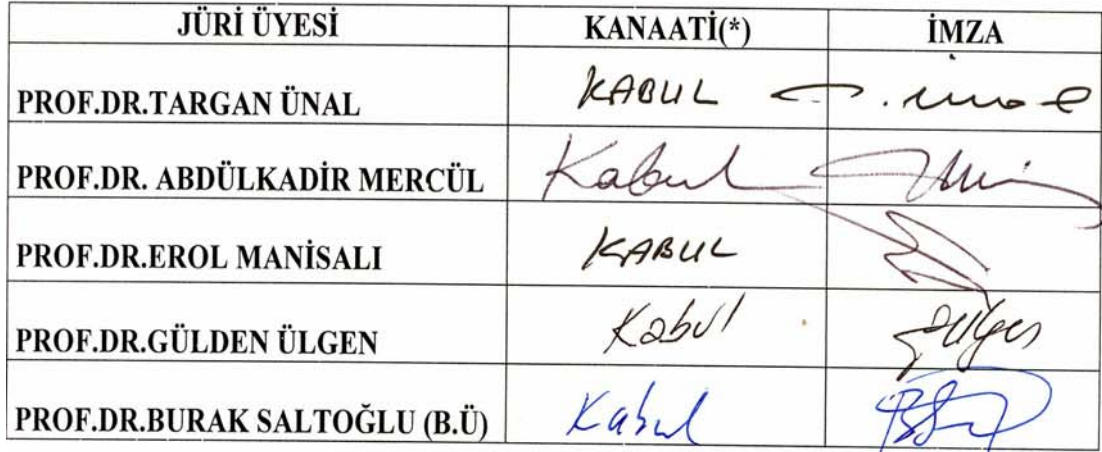 JÜRİ ÜYESİ KANAATİ(*) İMZA
PROF.DR.TARGAN ÜNAL KABUL
PROF.DR. ABDÜLKADİR MERCÜL Kabul
PROF.DR.EROL MANİSALI KABUL
PROF.DR.GÜLDEN ÜLGEN Kabul
PROF.DR.BURAK SALTOĞLU (B.Ü) Kabul